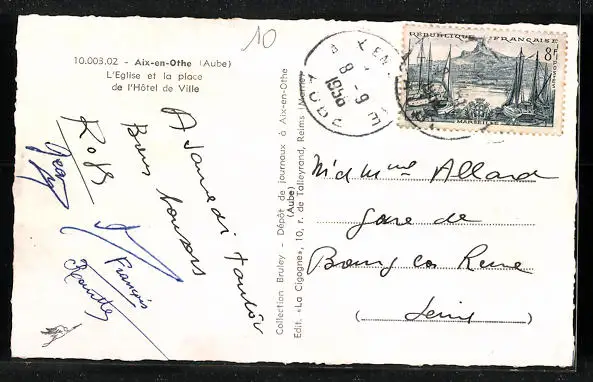 10
10.003.02 - Aix-en-Othe (Aube)
L'Eglise et la place
de l'Hôtel de Ville
RÉPUBLIQUE FRANÇAISE
8F
MARSEILLE
8 - 9
1956
AUBE
A Samedi tantôt
Bons baisers
Jean
François
Collection Bruley - Dépôt de journaux à Aix-en-Othe
(Aube)
Edit. «La Cigogne», 10, r. de Talleyrand, Reims (Marne)
M et Mme Allard
Gare de
Bourg la Reine
(Seine)